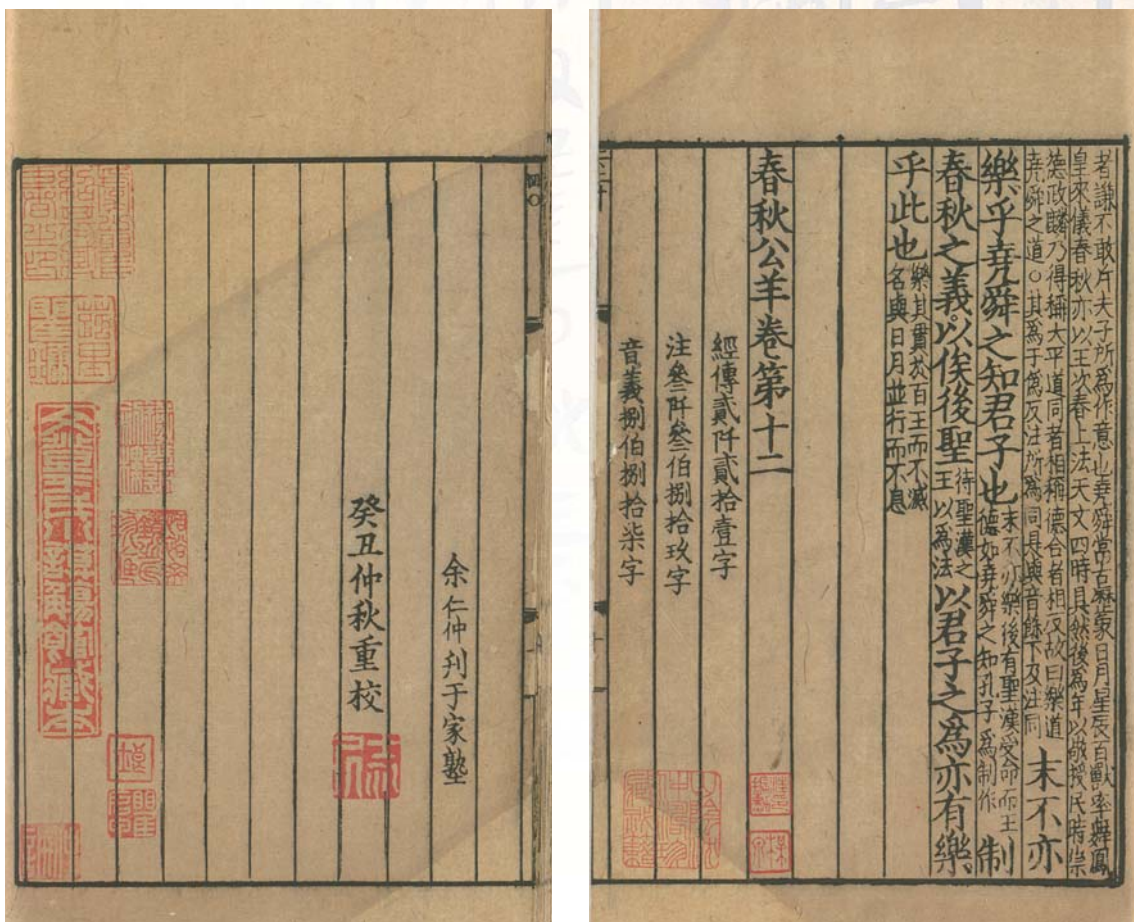 者謙不敢斥夫子所爲作意也堯舜當古厤象日月星辰百獸率舞鳳
皇來儀春秋亦以王次春上法天文四時具然後爲年以敬授民時崇
德致麟乃得稱大平道同者相稱德合者相友故曰樂道
堯舜之道○其爲于僞反注所爲同具與音餘下及注同
末不亦
樂乎堯舜之知君子也末不亦樂後有聖漢受命而王德如堯舜之知孔子爲制作制
春秋之義以俟後聖待聖漢之王以爲法以君子之爲亦有樂
乎此也樂其貫於百王而不滅名與日月並行而不息
春秋公羊卷第十二
經傳貳阡貳拾壹字
注叄阡叄伯捌拾玖字
音義捌伯捌拾柒字
余仁仲刊于家塾
癸丑仲秋重校